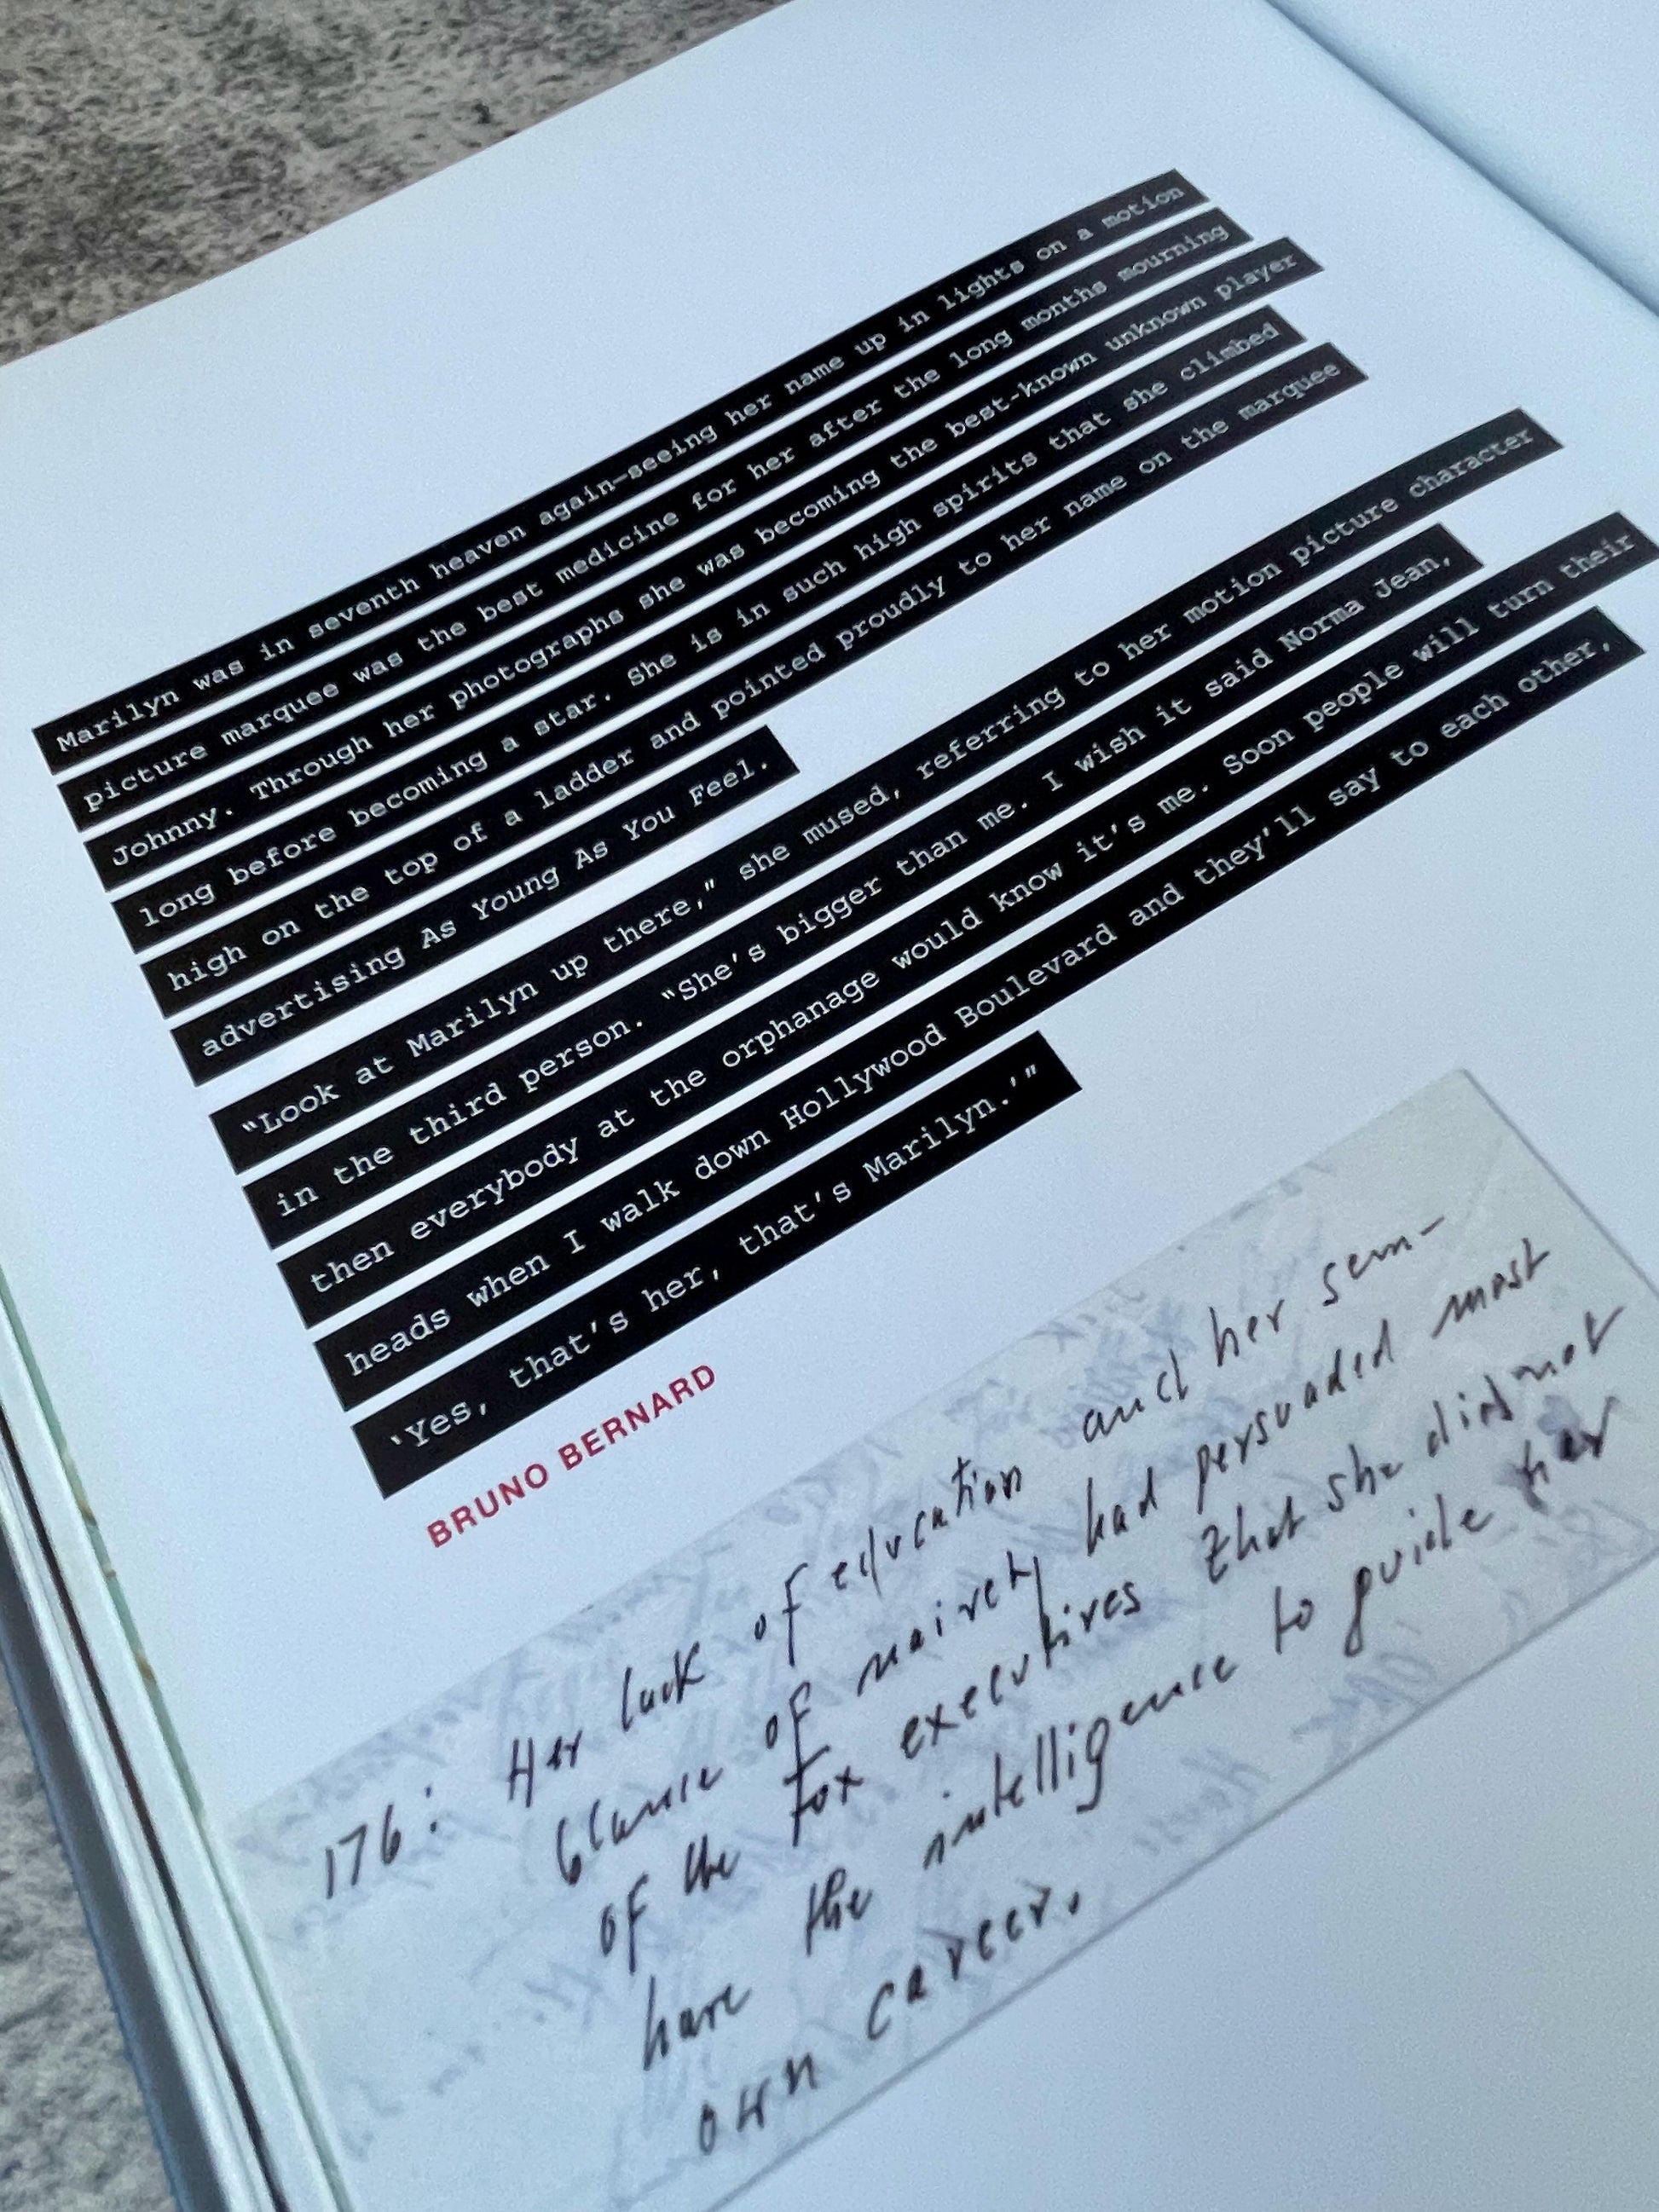 Marilyn was in seventh heaven again—seeing her name up in lights on a motion
picture marquee was the best medicine for her after the long months mourning
Johnny. Through her photographs she was becoming the best-known unknown player
long before becoming a star. She is in such high spirits that she climbed
high on the top of a ladder and pointed proudly to her name on the marquee
advertising As Young As You Feel.
“Look at Marilyn up there,” she mused, referring to her motion picture character
in the third person. “She’s bigger than me. I wish it said Norma Jean,
then everybody at the orphanage would know it’s me. Soon people will turn their
heads when I walk down Hollywood Boulevard and they’ll say to each other,
‘Yes, that’s her, that’s Marilyn.’”
BRUNO BERNARD
176: Her lack of education and her sem-
blance of naivety had persuaded most
of the Fox executives that she did not
have the intelligence to guide her
own career.